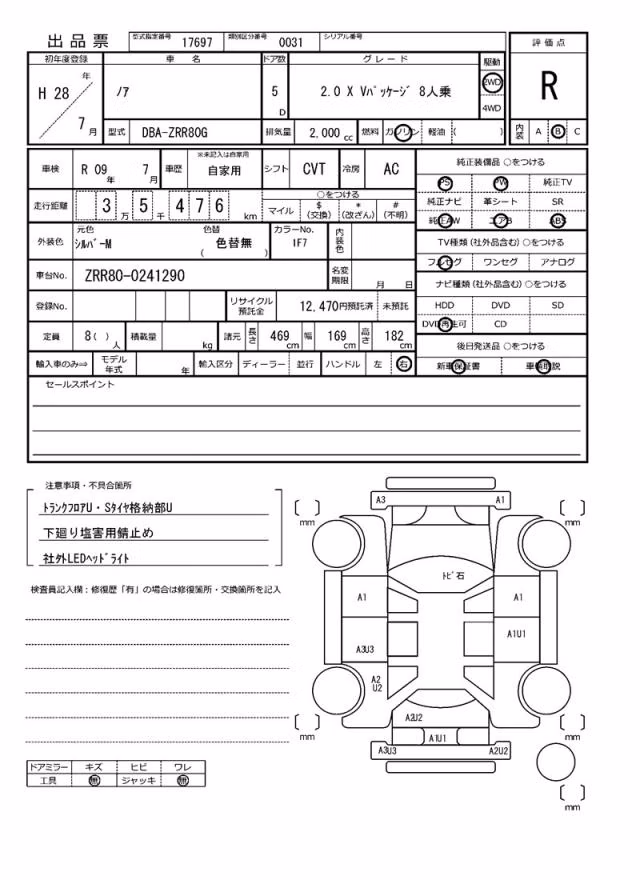 出品票 型式指定番号 17697 類別区分番号 0031 シリアル番号
初年度登録 車名 ドア数 グレード 駆動 評価点
H 28 年 7 月 ノア 5 D 2.0 X Vパッケージ 8人乗 2WD 4WD R
型式 DBA-ZRR80G 排気量 2,000 cc 燃料 ガソリン 軽油 ( ) 内装 A B C
車検 R 09 年 7 月 車歴 ※未記入は自家用 自家用 シフト CVT 冷房 AC
走行距離 3 万 5 千 4 7 6 km ○をつける マイル $ (交換) * (改ざん) # (不明)
外装色 元色 シルバーM 色替 色替無 ( ) カラーNo. 1F7 内装色
車台No. ZRR80-0241290 名変期限 月 日
登録No. リサイクル預託金 12,470円預託済 未預託
定員 8 ( ) 人 積載量 kg 諸元 長さ 469 cm 幅 169 cm 高さ 182 cm
輸入車のみ⇒ モデル年式 年 輸入区分 ディーラー 並行 ハンドル 左 右
純正装備品 ○をつける
PS PW 純正TV
純正ナビ 革シート SR
純正AW エアB ABS
TV種類 (社外品含む) ○をつける
フルセグ ワンセグ アナログ
ナビ種類 (社外品含む) ○をつける
HDD DVD SD
DVD再生可 CD
後日発送品 ○をつける
新車保証書 車輌取説
セールスポイント
注意事項・不具合箇所
トランクフロアU・Sタイヤ格納部U
下廻り塩害用錆止め
社外LEDヘッドライト
検査員記入欄：修復歴「有」の場合は修復箇所・交換箇所を記入
ドアミラー キズ ヒビ ワレ
工具 無 ジャッキ 無
A3 A1
mm mm
トビ石
A1 A1
A3U3 A1U1
A2
U2
A2U2
mm A1U1 mm
A3U3 A2U2
mm